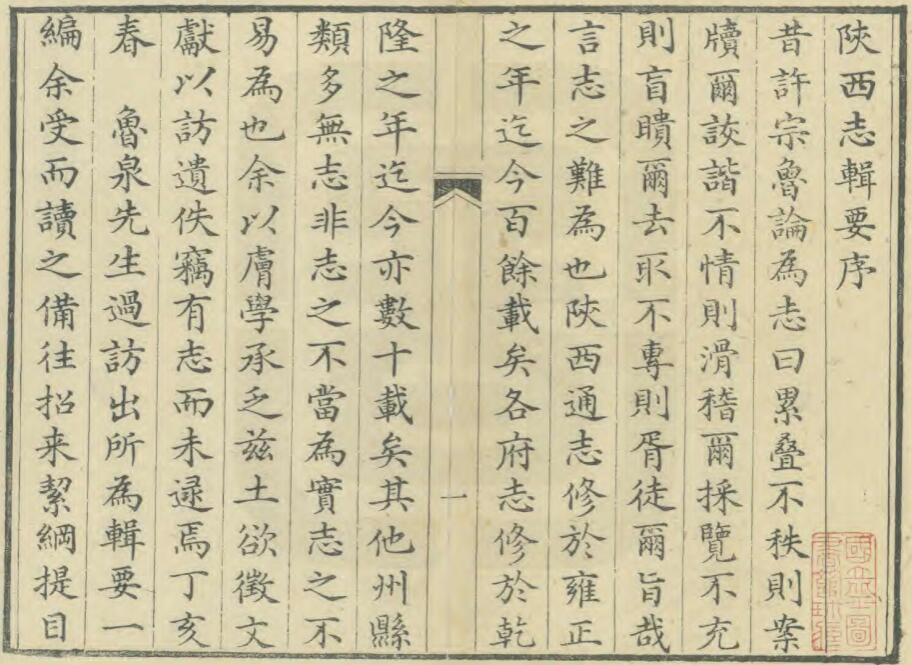 陝西志輯要序
昔許宗魯論為志曰累疊不秩則案
牘爾詼諧不情則滑稽爾採覽不充
則盲瞶爾去取不專則胥徒爾旨哉
言志之難為也陝西通志修於雍正
之年迄今百餘載矣各府志修於乾
一
隆之年迄今亦數十載矣其他州縣
類多無志非志之不當為實志之不
易為也余以膚學承乏兹土欲徵文
獻以訪遺佚竊有志而未逯焉丁亥
春 魯泉先生過訪出所為輯要一
編余受而讀之備往招来絜綱提目